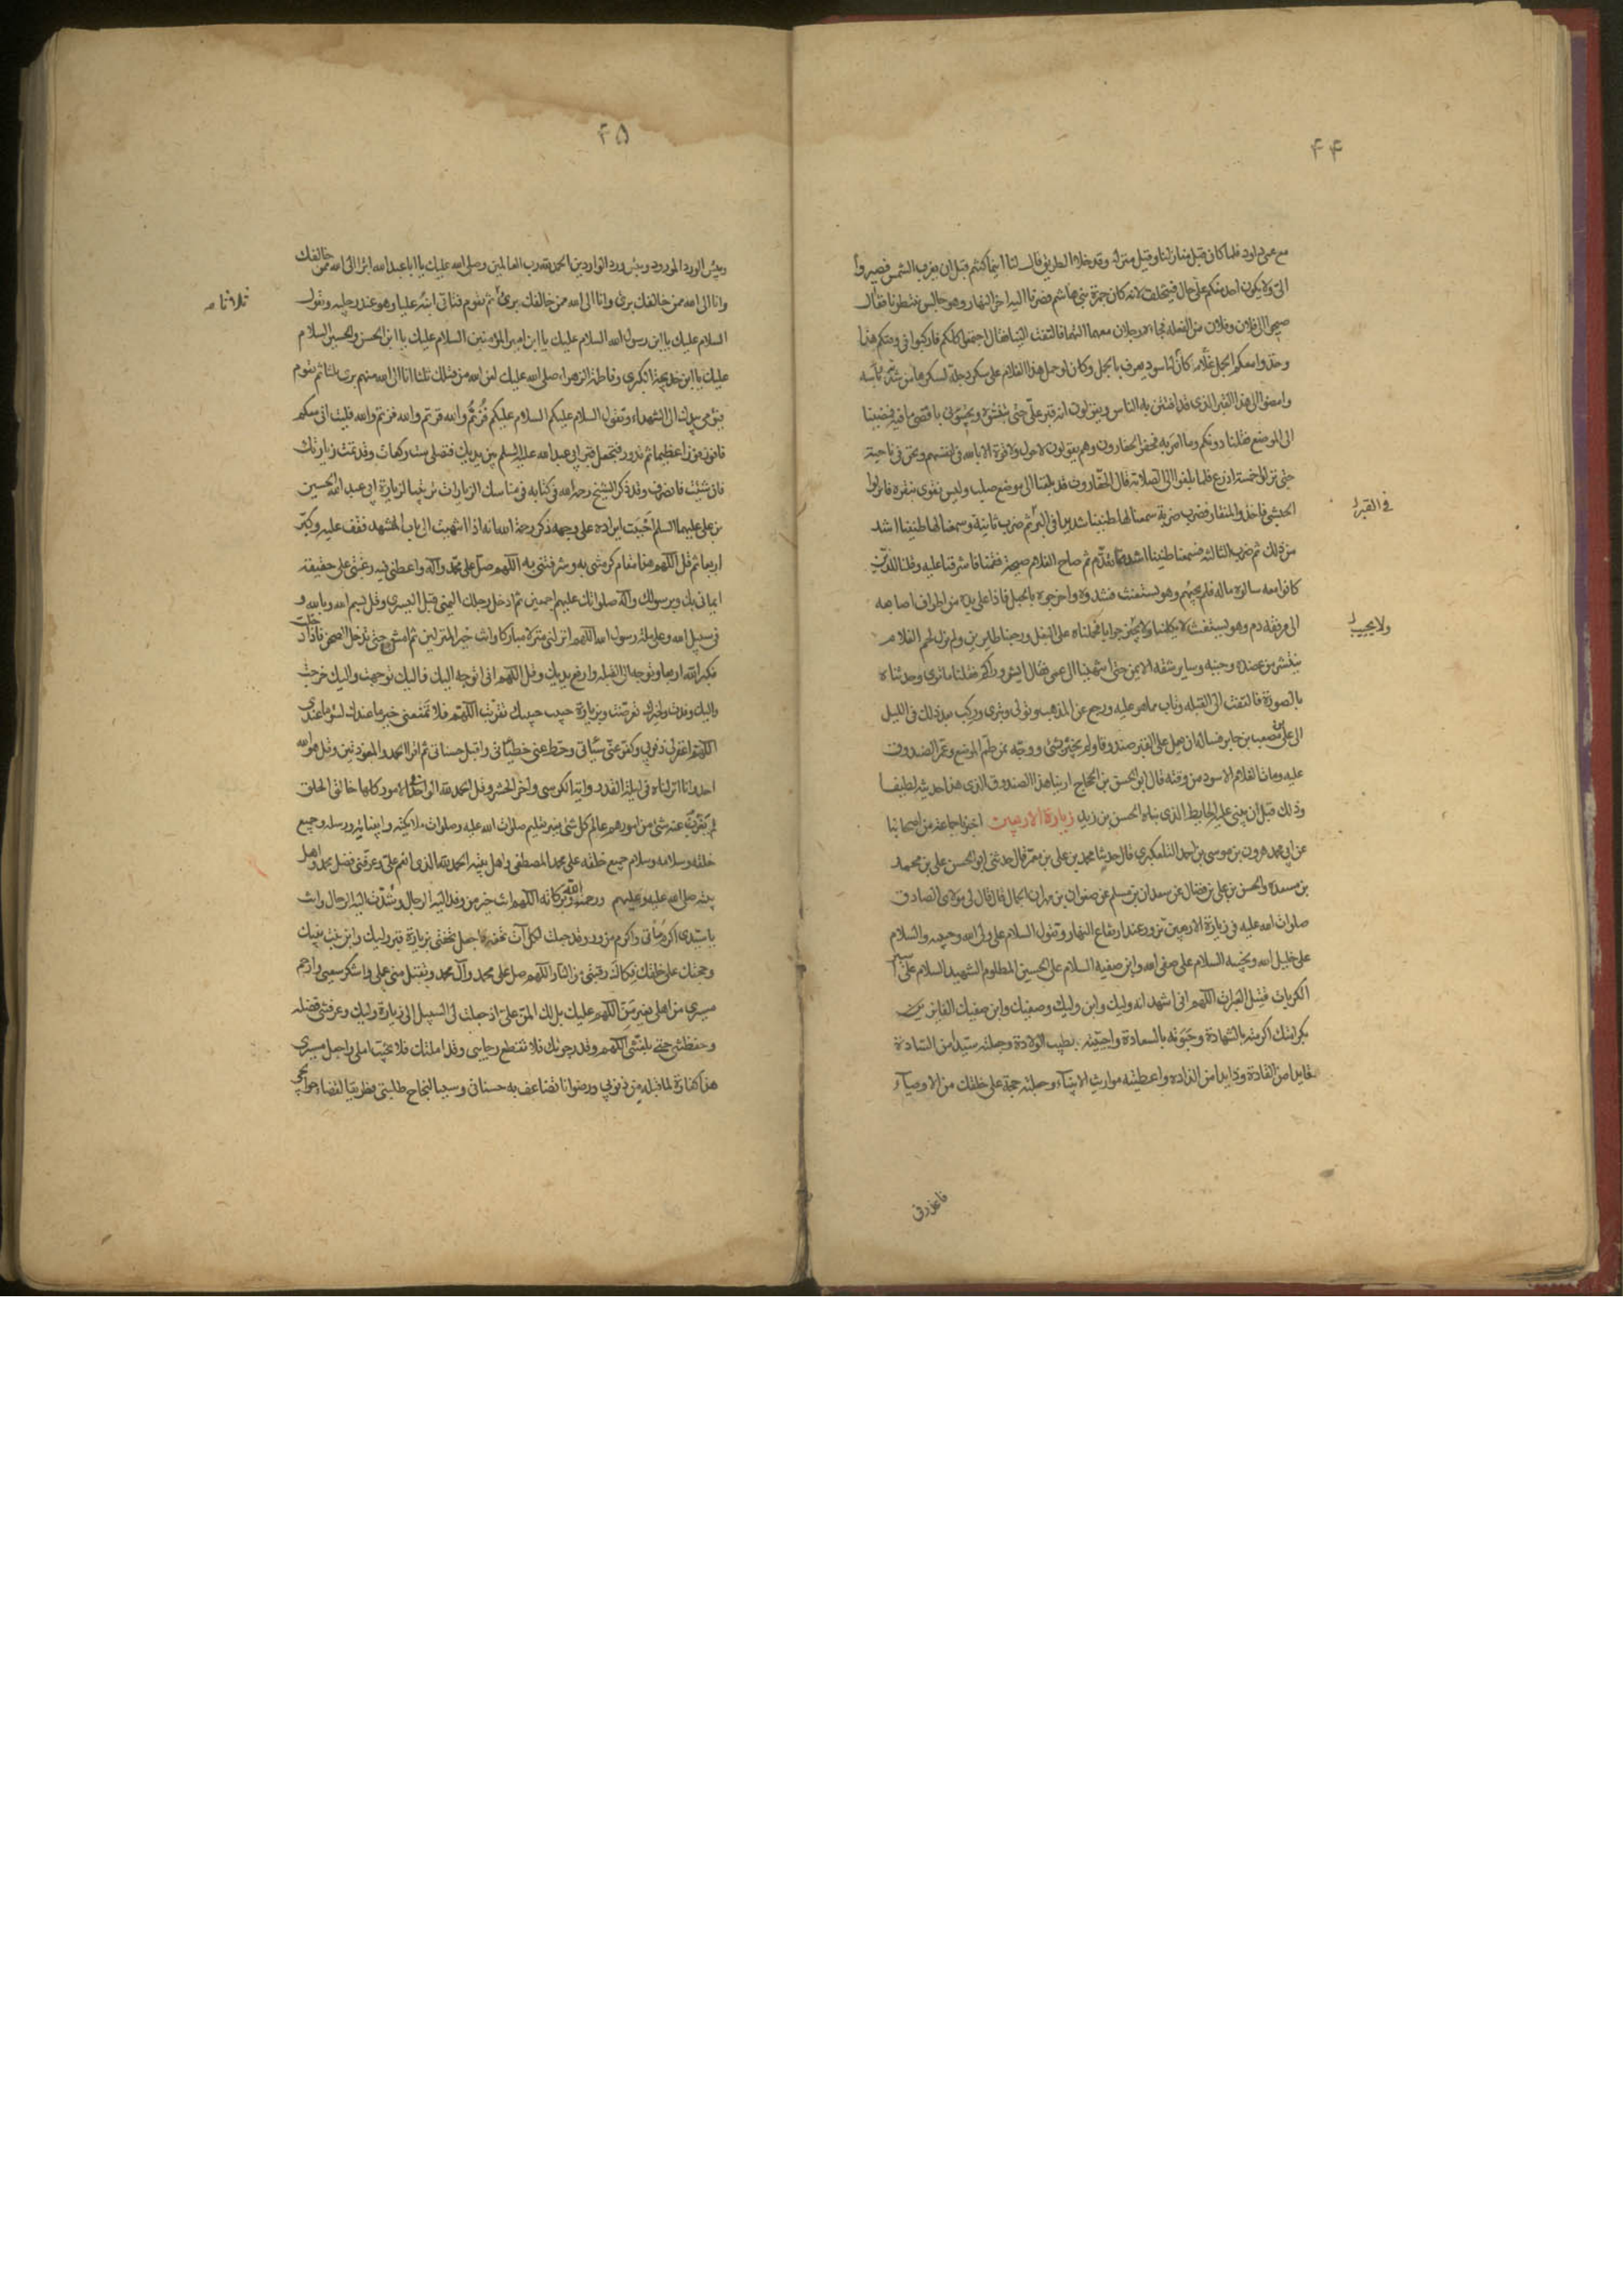 ۴۴
مع عمى داود فلما كان قبل منازلنا وقبل منزله وقد خلا الطريق قال لنا اينما كنتم قبل ان يغرب الشمس فصيروا
الىّ ولا يكون احد منكم على حال فيتخلف لانه كان جمرة بنى هاشم فصرنا اليه اخر النهار وهو جالس ينتظرنا فقال
صيحوا الى فلان وفلان من الفعله فجاءا رجلان معهما التهما فالتفت الينا فقال اجتمعوا كلكم فاركبوا فى وقتكم هذا
وخذوا معكم الجمل غلاما كان لنا اسود يعرف بالجمل وكان لو حمل هذا الغلام على سكر دجلة لسكرها من شدته وبأسه
وامضوا الى هذا القبر الذى قد افتتن به الناس ويقولون انه قبر علىّ حتى تنبشوه وتجيئونى باقصى ما فيه فمضينا
الى الموضع فقلنا دونكم وما امر به فحفر الحفارون وهم يقولون لا حول ولا قوة الا بالله فى انفسهم ونحن فى ناحية
حتى نزلوا خمسة اذرع فلما بلغوا الى الصلابة قال الحفارون قد بلغنا الى موضع صلب وليس نقوى بنقره فانزلوا
الحبشى فاخذ المنقار فضرب ضربة سمعنا لها طنينا شديدا فى البر ثم ضرب ثانية وسمعنا لها طنينا اشد
فى القبر
من ذلك ثم ضرب الثالثه فسمعنا طنينا اشد مما تقدم ثم صاح الغلام صيحة فقمنا فاشرفنا عليه وقلنا للذين
كانوا معه سالوه ماله فلم يجبهم وهو يستغيث فشدوه واخرجوه بالحبل فاذا على يده من اطراف اصابعه
الى مرفقه دم وهو يستغيث لا يكلمنا ولا يحير جوابا فحملناه على البغل ورجعنا طايرين ولم يزل لحم الغلام
ولا يجيب
ينتثر من عضده وجنبه وساير شقه الايمن حتى انتهينا الى عمى فقال ايش وراكم فقلنا ما ترى وحدثناه
بالصورة فالتفت الى القبلة وتاب مما هو عليه ورجع عن المذهب وتولى وتبرى وركب بعد ذلك فى الليل
الى على بن مصعب بن جابر فساله ان يعمل على القبر صندوقا ولم يخبره بشئ ووجه من طم الموضع وعمر الصندوق
عليه ومات الغلام الاسود من وقته قال ابو الحسن بن الحجاج راينا هذا الصندوق الذى هذا حديثه لطيفا
وذلك قبل ان يبنى عليه الحايط الذى بناه الحسن بن زيد زيارة الاربعين اخبرنا جماعة من اصحابنا
عن ابى محمد هرون بن موسى بن احمد التلعكبرى قال حدثنا محمد بن على بن معمر قال حدثنى ابو الحسن على بن محمد
بن مسعده والحسن بن على بن فضال عن سعدان بن مسلم عن صفوان بن مهران الجمال قال قال لى مولاى الصادق
صلوات الله عليه فى زيارة الاربعين تزور عند ارتفاع النهار وتقول السلام على ولى الله وحبيبه والسلام
على خليل الله ونجيبه السلام على صفى الله وابن صفيه السلام على الحسين المظلوم الشهيد السلام على اسير
الكربات قتيل العبرات اللهم انى اشهد انه وليك وابن وليك وصفيك وابن صفيك الفايز
بكرامتك اكرمته بالشهادة وحبوته بالسعادة واجتبيته بطيب الولادة وجعلته سيدا من السادة
قايدا من القادة وذايدا من الذاده واعطيته مواريث الانبياء وجعلته حجة على خلقك من الاوصياء
فاعذر فى
۴۵
وبئس الورد المورود وبئس ورد الواردين الحمد لله رب العالمين وصلى الله عليك يا ابا عبد الله ابرا الى الله ممن خالفك
وانا الى الله ممن خالفك برئ وانا الى الله ممن خالفك برئ ثم تقوم فتاتى ابنه عليا وهو عند رجليه وتقول
ثلاثا
السلام عليك يا ابن رسول الله السلام عليك يا ابن امير المؤمنين السلام عليك يا ابن الحسن والحسين السلام
عليك يا ابن خديجة الكبرى وفاطمة الزهراء صلى الله عليك لعن الله من قتلك ثلثا انا الى الله منهم برئ ثلثا ثم تقوم
فتومى بيدك الى الشهداء وتقول السلام عليكم السلام عليكم فزتم والله فزتم والله فزتم والله فليت انى معكم
فافوز فوزا عظيما ثم تدور فتجعل قبر ابى عبد الله عليه السلم بين يديك فتصلى ست ركعات وقد تمت زيارتك
فان شئت فانصرف وقد ذكر الشيخ رحمه الله فى كتابه فى مناسك الزيارات ترتيبا لزيارة ابى عبد الله الحسين
بن على عليهما السلم احببت ايراده على وجهه ذكر رحمة الله انه اذا انتهيت الى باب المشهد فقف عليه وكبّر
اربعا ثم قل اللهم هذا مقام كرمتنى به وشرفتنى به اللهم صل على محمد وآله واعطنى فيه رغبتى على حقيقة
ايمانى بك وبرسولك وآله صلواتك عليهم اجمعين ثم ادخل رجلك اليمنى قبل اليسرى وقل بسم الله وبالله و
فى سبيل الله وعلى ملة رسول الله اللهم انزلنى منزلا مباركا وانت خير المنزلين ثم امش حتى تدخل الصحن فاذا دخلت
فكبر الله اربعا وتوجه الى القبلة وارفع يديك وقل اللهم انى اتوجه اليك فاليك توجهت واليك خرجت
واليك وفدت ولخيرك تعرضت وبزيارة حبيب حبيبك تقربت اللهم فلا تمنعنى خير ما عندك لسوء ما عندى
اللهم اغفر لى ذنوبى وكفر عنى سيئاتى وحط عنى خطيئاتى واقبل حسناتى ثم اقرا الحمد والمعوذتين وقل هو الله
احد وانا انزلناه فى ليلة القدر واية الكرسى واخر الحشر وقل الحمد لله الواحد الامور كلها خالق الخلق
لم يعزب عنه شئ من امورهم عالم كل شئ بغير تعليم صلوات الله عليه وصلوات ملائكته وانبيائه ورسله وجميع
خلقه وسلامه وسلام جميع خلقه على محمد المصطفى واهل بيته الحمد لله الذى انعم علىّ وعرفنى فضل محمد واهل
بيته صلى الله عليه وعليهم ورحمة الله وبركاته اللهم انت خير من وفد اليه الرجال وشدت اليه الرحال وانت
يا سيدى اكرم ماتى واكرم مزور وقد جعلت لكل آت تحفة فاجعل تحفتى بزيارة قبر وليك وابن بنت نبيك
وحجتك على خلقك فكاك رقبتى من النار اللهم صل على محمد وآل محمد وتقبل منى عملى واشكر سعيى وارحم
مسيرى من اهلى بغير من اللهم عليك بل لك المن علىّ اذ جعلت لى السبيل الى زيارة وليك وعرفتنى فضله
وحفظتنى حتى بلغتنى اللهم وقد رجوتك فلا تقطع رجايى وقد املتك فلا تخيب املى واجعل مسيرى
هذا كفارة لما قبله من ذنوبى ورضوانا تضاعف به حسناتى وسببا لنجاح طلبتى وطريقا لقضاء حوايجى